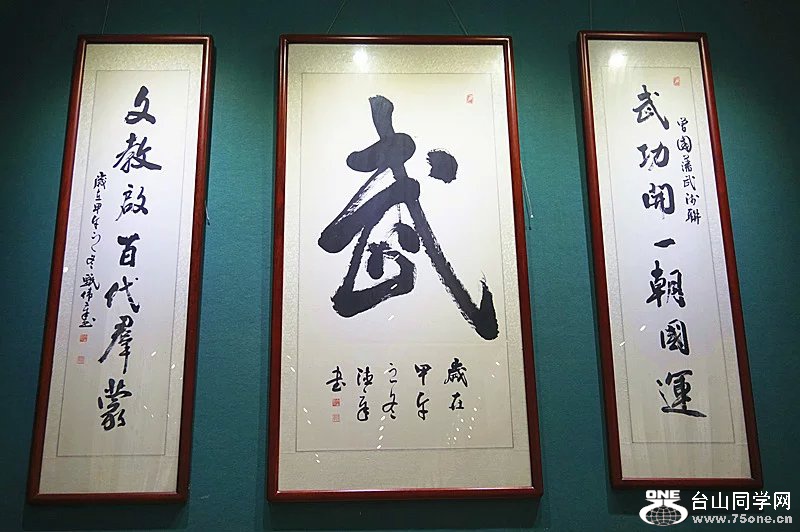 曾國藩武聯
武功開一朝國運
武
歲在
甲午
之冬
书
文教啟百代羣蒙
歲在甲午之冬
ONE
台山同学网
www.75one.cn